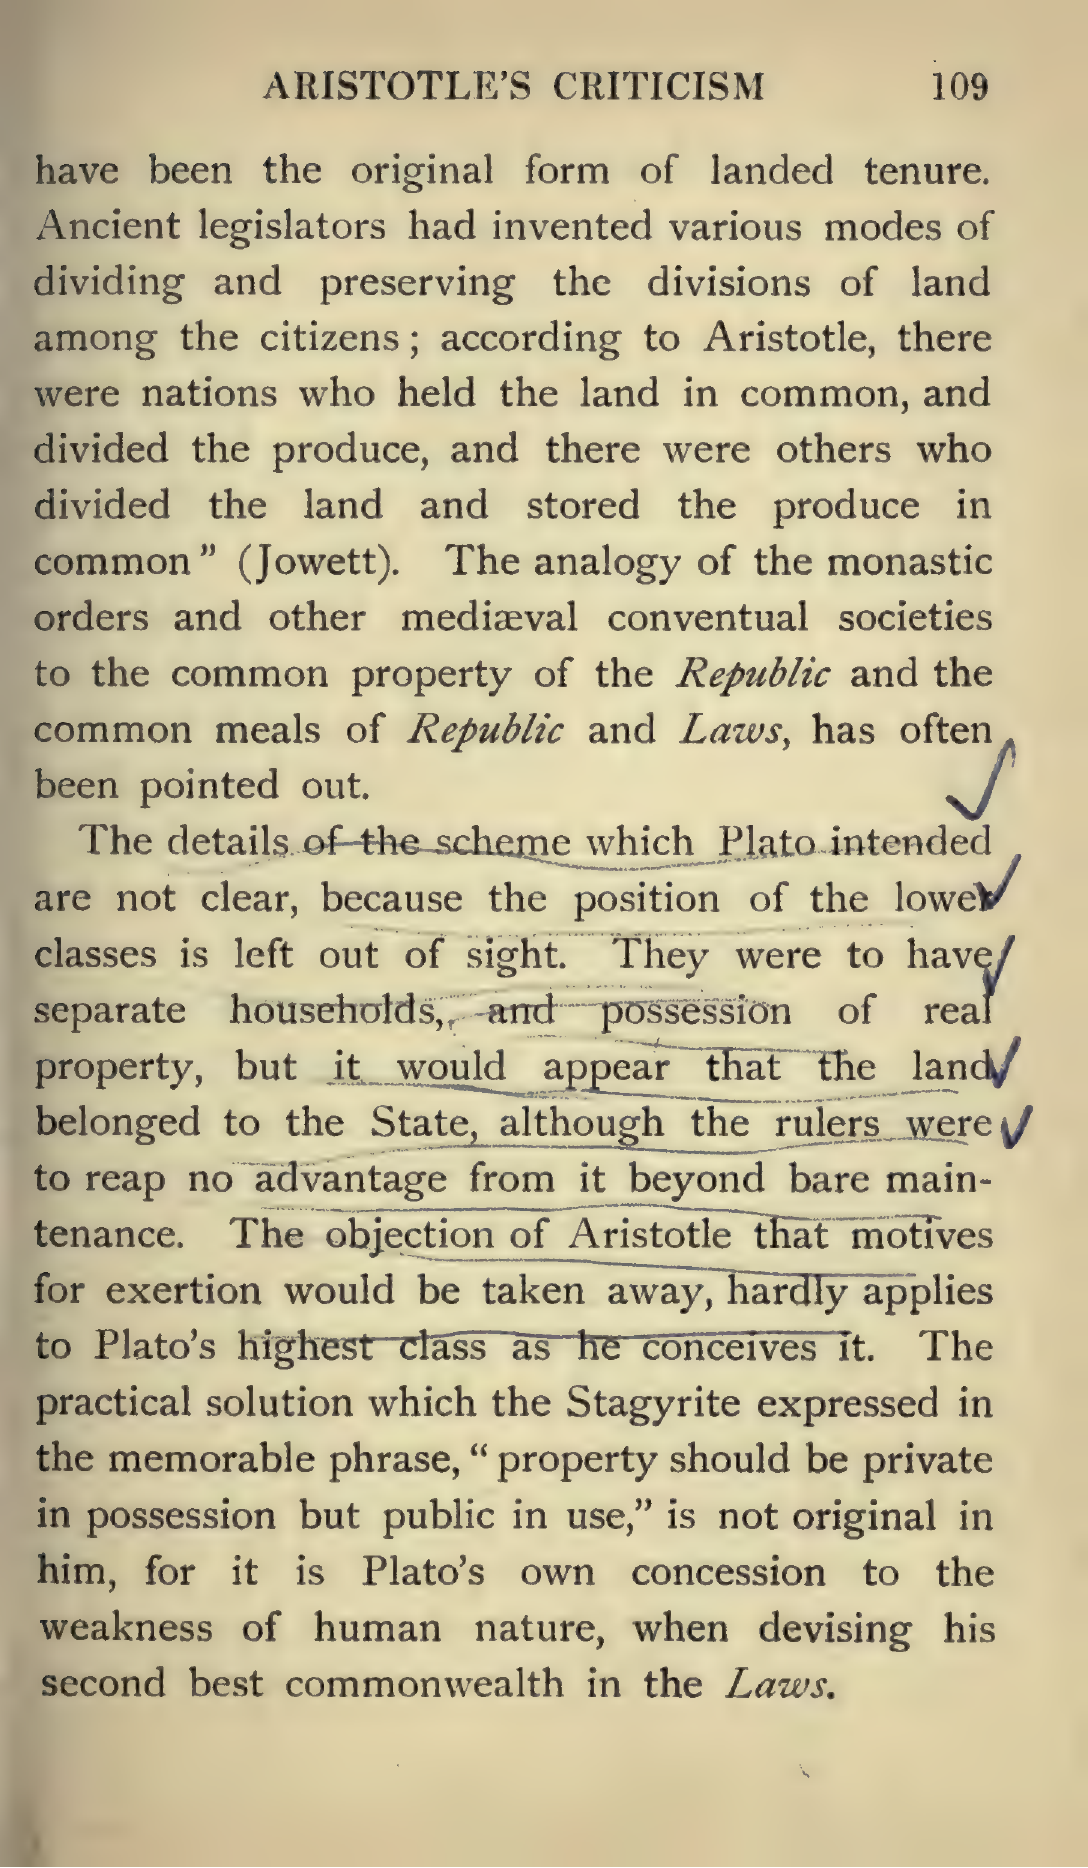 ARISTOTLE'S CRITICISM 109
have been the original form of landed tenure.
Ancient legislators had invented various modes of
dividing and preserving the divisions of land
among the citizens; according to Aristotle, there
were nations who held the land in common, and
divided the produce, and there were others who
divided the land and stored the produce in
common" (Jowett). The analogy of the monastic
orders and other mediæval conventual societies
to the common property of the Republic and the
common meals of Republic and Laws, has often
been pointed out.
The details of the scheme which Plato intended
are not clear, because the position of the lower
classes is left out of sight. They were to have
separate households, and possession of real
property, but it would appear that the land
belonged to the State, although the rulers were
to reap no advantage from it beyond bare main-
tenance. The objection of Aristotle that motives
for exertion would be taken away, hardly applies
to Plato's highest class as he conceives it. The
practical solution which the Stagyrite expressed in
the memorable phrase, "property should be private
in possession but public in use," is not original in
him, for it is Plato's own concession to the
weakness of human nature, when devising his
second best commonwealth in the Laws.